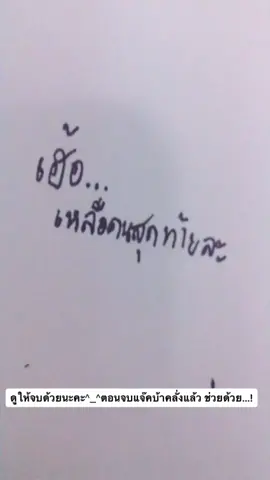 เฮ้อ...
เหลือคนสุดท้ายละ
ดูให้จบด้วยนะคะ^_^ตอนจบแจ๊คบ้าคลั่งแล้ว ช่วยด้วย...!